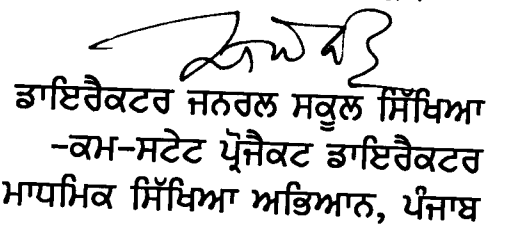 ਡਾਇਰੈਕਟਰ ਜਨਰਲ ਸਕੂਲ ਸਿੱਖਿਆ
-ਕਮ-ਸਟੇਟ ਪ੍ਰੋਜੈਕਟ ਡਾਇਰੈਕਟਰ
ਮਾਧਮਿਕ ਸਿੱਖਿਆ ਅਭਿਆਨ, ਪੰਜਾਬ